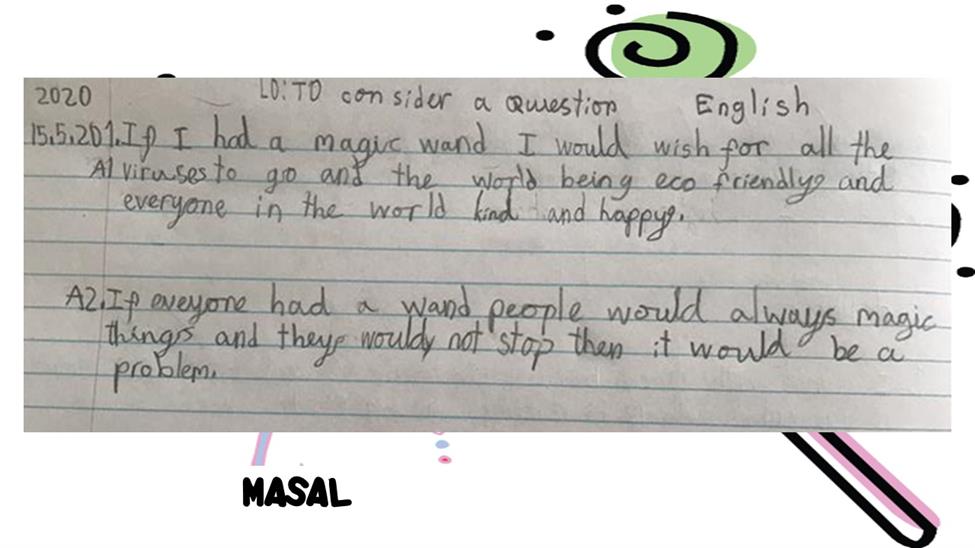 2020 LO: TO consider a Question English
15.5.201. If I had a magic wand I would wish for all the
A1 Viruses to go and the world being eco friendly and
everyone in the world kind and happy.
A2. If eveyone had a wand people would always magic
things and they would not stop then it would be a
problem.
MASAL